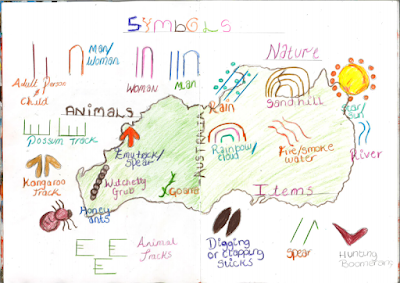 SYMBOLS
Man/
Woman
Nature
Adult Person
&
Child
Woman
Man
Rain
Sandhill
Star/
Sun
ANIMALS
AUSTRALIA
Possum Track
Emu track/
Spear
Rainbow/
cloud
Fire/smoke
water
River
Kangaroo
Track
Witchetty
Grub
Goanna
Items
Honey
ants
Animal
Tracks
Digging
or clapping
sticks
Spear
Hunting
Boomerang